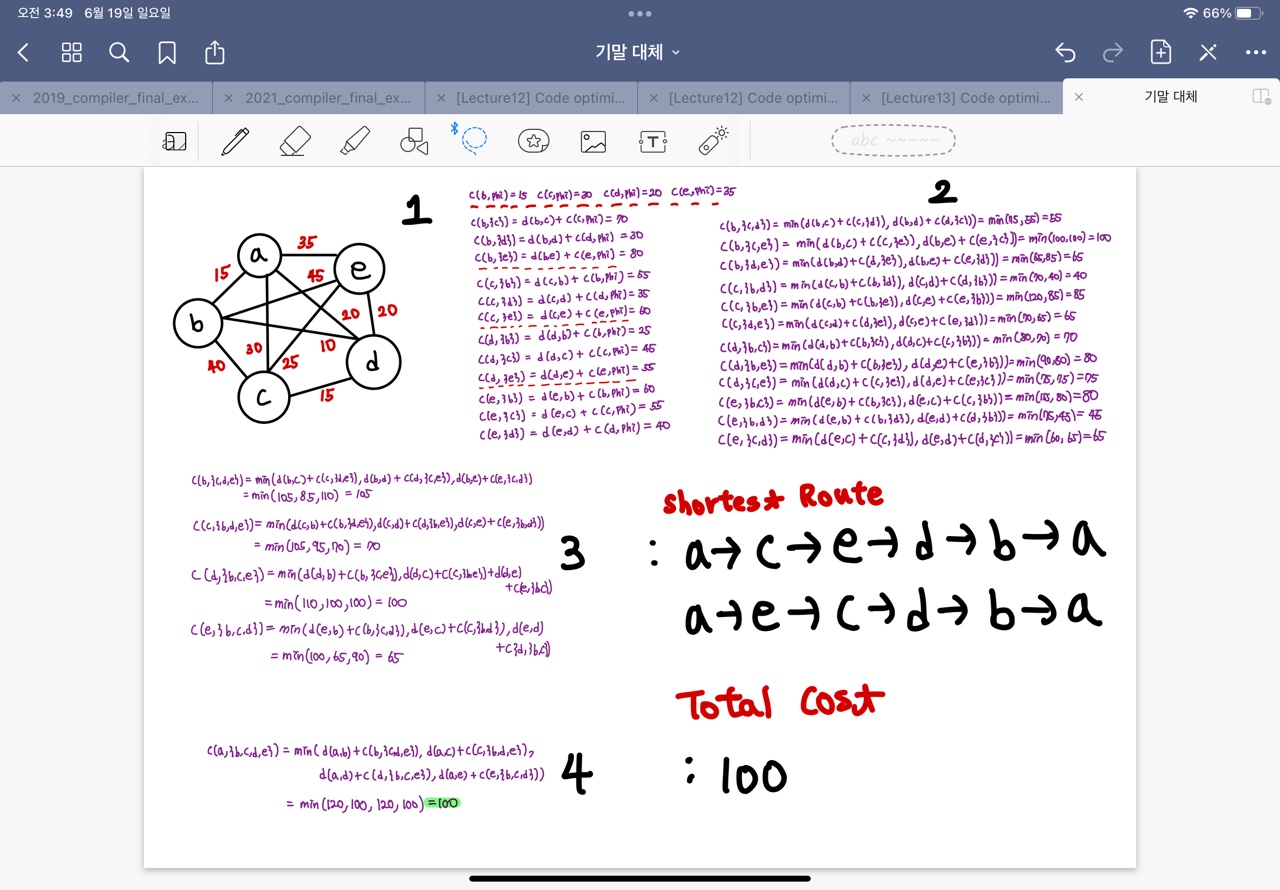 오전 3:49 6월 19일 일요일
66%
기말 대체
2019_compiler_final_ex...
2021_compiler_final_ex...
[Lecture12] Code optimi...
[Lecture12] Code optimi...
[Lecture13] Code optimi...
기말 대체
T
abc ~~~~~
1
a
b
c
d
e
35
15
45
20
20
10
30
25
40
15
C(b,phi)=15 C(c,phi)=30 C(d,phi)=20 C(e,phi)=35
C(b,{c}) = d(b,c) + C(c,phi) = 70
C(b,{d}) = d(b,d) + C(d,phi) = 30
C(b,{e}) = d(b,e) + C(e,phi) = 80
C(c,{b}) = d(c,b) + C(b,phi) = 55
C(c,{d}) = d(c,d) + C(d,phi) = 35
C(c,{e}) = d(c,e) + C(e,phi) = 60
C(d,{b}) = d(d,b) + C(b,phi) = 25
C(d,{c}) = d(d,c) + C(c,phi) = 45
C(d,{e}) = d(d,e) + C(e,phi) = 55
C(e,{b}) = d(e,b) + C(b,phi) = 60
C(e,{c}) = d(e,c) + C(c,phi) = 55
C(e,{d}) = d(e,d) + C(d,phi) = 40
2
C(b,{c,d}) = min(d(b,c) + C(c,{d}), d(b,d) + C(d,{c})) = min(75,55) = 55
C(b,{c,e}) = min(d(b,c) + C(c,{e}), d(b,e) + C(e,{c})) = min(100,100) = 100
C(b,{d,e}) = min(d(b,d) + C(d,{e}), d(b,e) + C(e,{d})) = min(65,85) = 65
C(c,{b,d}) = min(d(c,b) + C(b,{d}), d(c,d) + C(d,{b})) = min(70,40) = 40
C(c,{b,e}) = min(d(c,b) + C(b,{e}), d(c,e) + C(e,{b})) = min(120,85) = 85
C(c,{d,e}) = min(d(c,d) + C(d,{e}), d(c,e) + C(e,{d})) = min(70,65) = 65
C(d,{b,c}) = min(d(d,b) + C(b,{c}), d(d,c) + C(c,{b})) = min(80,70) = 70
C(d,{b,e}) = min(d(d,b) + C(b,{e}), d(d,e) + C(e,{b})) = min(90,80) = 80
C(d,{c,e}) = min(d(d,c) + C(c,{e}), d(d,e) + C(e,{c})) = min(75,75) = 75
C(e,{b,c}) = min(d(e,b) + C(b,{c}), d(e,c) + C(c,{b})) = min(115,80) = 80
C(e,{b,d}) = min(d(e,b) + C(b,{d}), d(e,d) + C(d,{b})) = min(75,45) = 45
C(e,{c,d}) = min(d(e,c) + C(c,{d}), d(e,d) + C(d,{c})) = min(60,65) = 65
C(b,{c,d,e}) = min(d(b,c) + C(c,{d,e}), d(b,d) + C(d,{c,e}), d(b,e) + C(e,{c,d})
= min(105,85,110) = 105
C(c,{b,d,e}) = min(d(c,b) + C(b,{d,e}), d(c,d) + C(d,{b,e}), d(c,e) + C(e,{b,d}))
= min(105,95,70) = 70
C(d,{b,c,e}) = min(d(d,b) + C(b,{c,e}), d(d,c) + C(c,{b,e}) + d(d,e)
+ C(e,{b,c})
= min(110,100,100) = 100
C(e,{b,c,d}) = min(d(e,b) + C(b,{c,d}), d(e,c) + C(c,{b,d}), d(e,d)
+ C{d,{b,c})
= min(100,65,90) = 65
3
Shortest Route
: a→c→e→d→b→a
a→e→c→d→b→a
Total Cost
: 100
C(a,{b,c,d,e}) = min( d(a,b) + C(b,{c,d,e}), d(a,c) + C(c,{b,d,e}),
d(a,d) + C(d,{b,c,e}), d(a,e) + C(e,{b,c,d}))
= min(120,100,120,100) = 100
4